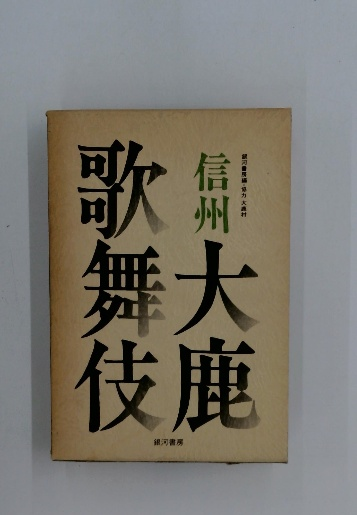 銀河書房編 協力 大鹿村
信州
大鹿
歌舞伎
銀河書房